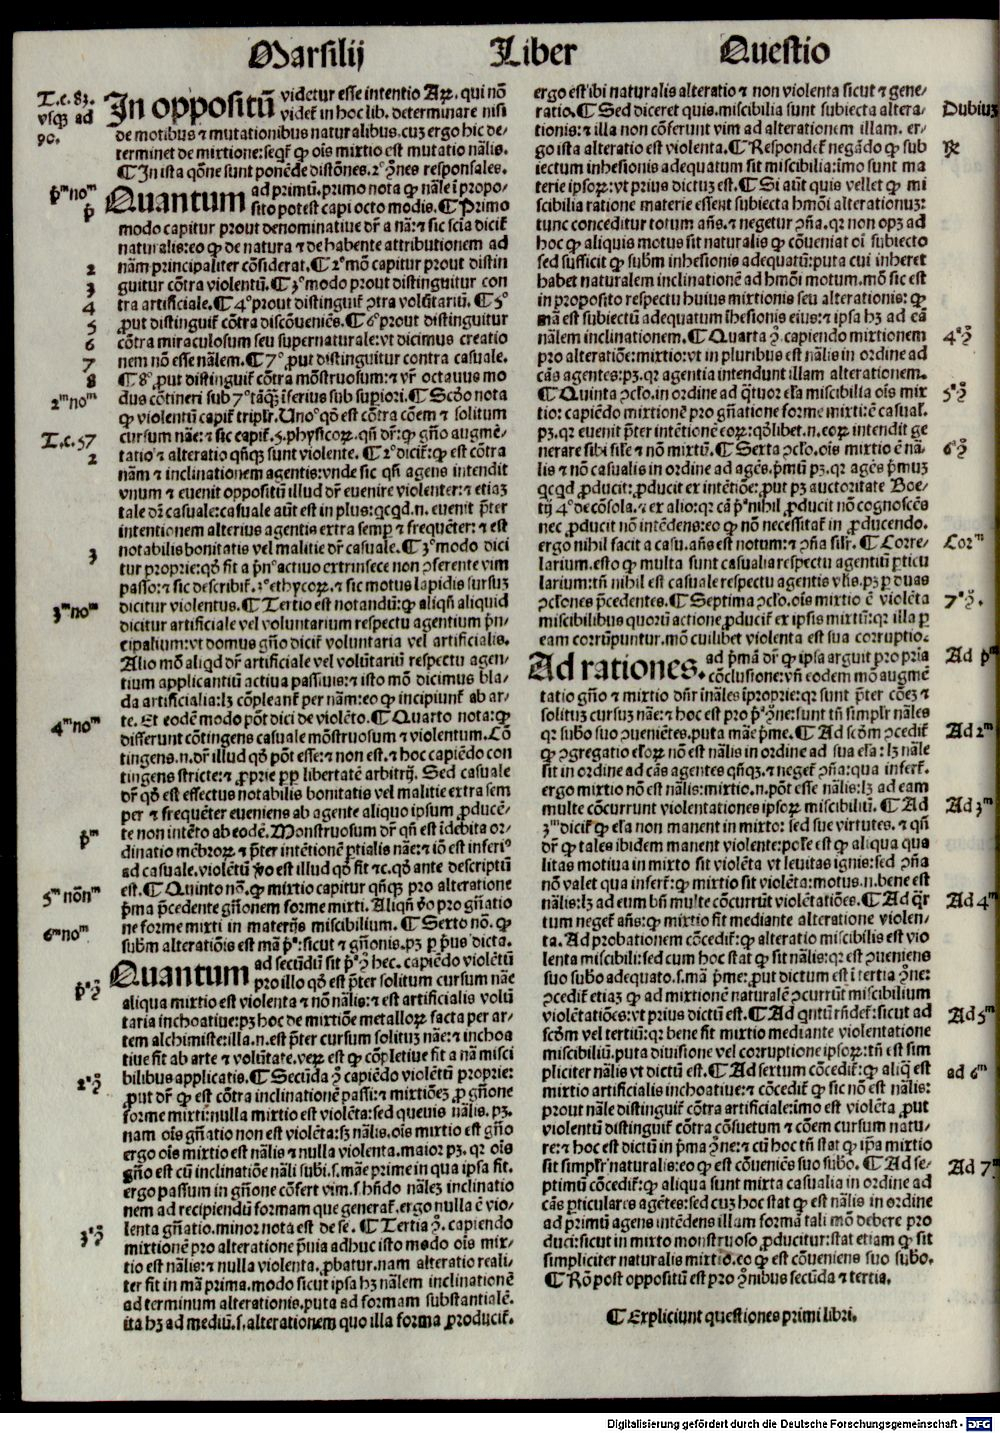 Marsilij Liber Questio
T.c.83.
vsqꝫ ad
90.
In oppositū videtur esse intentio Aꝝ. qui nō
videt᷑ in hoc lib. determinare nisi
de motibus ⁊ mutationibus naturalibus. cuꝫ ergo hic de/
terminet de mixtione: seqt᷑ ꝙ oīs mixtio est mutatio nālis.
¶ In ista qōne sunt ponēde distōnes. 2° ꝯ̄nes responsales.
p̄ᵐ noᵐ
Quantum ad primū. primo nota ꝙ nāle ī propo/
sito potest capi octo modis. ¶ Primo
modo capitur prout denominatiue dr̄ a nā: ⁊ sic scīa dicit᷑
naturalis: eo ꝙ de natura ⁊ de habente attributionem ad
nām principaliter cōsiderat. ¶ 2° mō capitur prout distin
guitur cōtra violentū. ¶ 3° modo prout distinguitur con
tra artificiale. ¶ 4° prout distinguit᷑ ꝯtra volūtariū. ¶ 5°
ꝓut distinguit᷑ cōtra discōueniēs. ¶ 6° prout distinguitur
cōtra miraculosum seu supernaturale: vt dicimus creatio
nem nō esse nālem. ¶ 7° ꝓut distinguitur contra casuale.
¶ 8° ꝓut distinguit᷑ cōtra mōstruosum: ⁊ vr̄ octauus mo
dus cōtineri sub 7° tāqꝫ īferius sub supiori. ¶ Scd̄o nota
ꝙ violentū capit᷑ triplr̄. Uno° qd̄ est cōtra cōem ⁊ solitum
cursum nāe: ⁊ sic capit᷑. 5. physicoꝝ. qn̄ dr̄: ꝙ gn̄o augmē/
tatio ⁊ alteratio qn̄qꝫ sunt violente. ¶ 2° dicit᷑: ꝙ est cōtra
nām ⁊ inclinationem agentis: vnde sic qn̄ agens intendit
vnum ⁊ euenit oppositū illud dr̄ euenire violenter: ⁊ etiaꝫ
tale dr̄ casuale: casuale aūt est in plus: qcqd. n. euenit p̄ter
intentionem alterius agentis extra semꝑ ⁊ frequēter: ⁊ est
notabilis bonitatis vel malitie dr̄ casuale. ¶ 3° modo dici
tur proprie: qd̄ fit a p̄n° actiuo extrinsece non ꝯferente vim
passo: ⁊ sic describit᷑. 3° ethycoꝝ. ⁊ sic motus lapidis sursuꝫ
dicitur violentus. ¶ Tertio est notandū: ꝙ aliqn̄ aliquid
dicitur artificiale vel voluntarium respectu agentium p̄n/
cipalium: vt domus gn̄o dicit᷑ voluntaria vel artificialis.
Alio mō aliqd dr̄ artificiale vel volūtariū respectu agen/
tium applicantiū actiua passiuis: ⁊ isto mō dicimus bla/
da artificialia: lꝫ cōpleant᷑ per nām: eo ꝙ incipiunt᷑ ab ar/
te. Et eodē modo pōt dici de violēto. ¶ Quarto nota: ꝙ
differunt cōtingens casuale mōstruosum ⁊ violentum. Cō
tingens. n. dr̄ illud qd̄ pōt esse: ⁊ non est. ⁊ hoc capiēdo con
tingens stricte: ⁊ ꝓprie ꝓp libertatē arbitrij. Sed casuale
dr̄ qd̄ est effectus notabilis bonitatis vel malitie extra sem
per ⁊ frequēter eueniens ab agente aliquo ipsum ꝓducē/
te non intēto ab eodē. Monstruosum dr̄ qn̄ est īdebita or/
dinatio mēbroꝝ ⁊ p̄ter intētionē ꝑtialis nāe: ⁊ iō est inferi°
ad casuale. violētū ꝟo est illud qd̄ fit ⁊c. qd̄ ante descriptū
est. ¶ Quinto nō. ꝙ mixtio capitur qn̄qꝫ pro alteratione
p̄ma p̄cedente gn̄onem forme mixti. Aliqn̄ ꝟo pro gn̄atio
ne forme mixti in materijs miscibilium. ¶ Sexto nō. ꝙ
subm̄ alteratiōis est mā p̄ᵃ: sicut ⁊ gn̄onis. pꝫ ꝑ p̄us dicta.
Quantum ad secūdū sit p̄ᵃ ꝯ̄ hec. capiēdo violētū
pro illo qd̄ est p̄ter solitum cursum nāe
aliqua mixtio est violenta ⁊ nō nālis: ⁊ est artificialis volū
taria inchoatiue: pꝫ hoc de mixtiōe metalloꝝ facta per ar/
tem alchimiste: illa. n. est p̄ter cursum solituꝫ nāe: ⁊ inchoa
tiue fit ab arte ⁊ volūtate. veꝝ est ꝙ cōpletiue fit a nā misci
bilibus applicatis. ¶ Secūda ꝯ̄ capiēdo violētū proprie:
ꝓut dr̄ ꝙ est cōtra inclinationē passi: ⁊ mixtioēꝫ ꝓ gn̄one
forme mixti: nulla mixtio est violēta: sed queuis nālis. pꝫ.
nam oīs gn̄atio non est violēta: sꝫ nālis. oīs mixtio est gn̄o
ergo oīs mixtio est nālis ⁊ nulla violenta. maior pꝫ. qr oīs
gn̄o est cū inclinatiōe nāli subi. s. māe prime in qua ipsa fit.
ergo passum in gn̄one cōfert vim. s. hn̄do nāleꝫ inclinatio
nem ad recipiendū formam que generat᷑. ergo nulla ē vio/
lenta gn̄atio. minor nota est de se. ¶ Tertia ꝯ̄. capiendo
mixtionē pro alteratione p̄uia adhuc isto modo oīs mix/
tio est nālis: ⁊ nulla violenta. ꝓbatur. nam alteratio reali/
ter fit in mā prima. modo sicut ipsa hꝫ nālem inclinationē
ad terminum alterationis. puta ad formam substantialē.
ita hꝫ ad mediū. s. alterationem quo illa forma ꝓducit᷑.
p̄
2
3
4
5
6
7
8
2ᵐ noᵐ
T.c.57
2
3
3ᵐ noᵐ
4ᵐ noᵐ
p̄ᵐ
5ᵐ nōnᵐ
6ᵐ noᵐ
p̄ᵃ ꝯ̄
2ᵃ ꝯ̄
3ᵃ ꝯ̄
ergo est ibi naturalis alteratio ⁊ non violenta sicut ⁊ gene/
ratio. ¶ Sed diceret quis. miscibilia sunt subiecta altera/
tionis: ⁊ illa non cōferunt vim ad alterationem illam. er/
go ista alteratio est violenta. ¶ Respondet᷑ negādo ꝙ sub
iectum inhesionis adequatum sit miscibilia: imo sunt ma
terie ipsoꝝ: vt prius dictuꝫ est. ¶ Si aūt quis vellet ꝙ mi
scibilia ratione materie essent subiecta hmōi alterationuꝫ:
tunc conceditur totum añs. ⁊ negetur ꝯña. qr non opꝫ ad
hoc ꝙ aliquis motus sit naturalis ꝙ cōueniat oī subiecto
sed sufficit ꝙ subm̄ inhesionis adequatū: puta cui inheret
habet naturalem inclinationē ad hmōi motum. mō sic est
in proposito respectu huius mixtionis seu alterationis: ꝙ
mā est subiectū adequatum īhesionis eius: ⁊ ipsa hꝫ ad eā
nālem inclinationem. ¶ Quarta ꝯ̄. capiendo mixtionem
pro alteratiōe: mixtio: vt in pluribus est nālis in ordine ad
cās agentes: pꝫ. qr agentia intendunt illam alterationem.
¶ Quinta ꝯclo. in ordine ad qͣtuor elā miscibilia oīs mix
tio: capiēdo mixtionē pro gn̄atione forme mixti: ē casual᷑.
pꝫ. qr euenit p̄ter intētionē eoꝝ: qd̄libet. n. eoꝝ intendit ge
nerare sibi sile ⁊ nō mixtū. ¶ Sexta ꝯclo. oīs mixtio ē nā/
lis ⁊ nō casualis in ordine ad agēs. p̄mū pꝫ. qr agēs p̄muꝫ
qcqd ꝓducit: ꝓducit ex intētiōe: ꝓut pꝫ auctoritate Boe/
tij 4° de cōsola. ⁊ ex alio: qr cā p̄ᵃ nihil ꝓducit nō cognoscēs
nec ꝓducit nō intēdens: eo ꝙ nō necessitat᷑ in ꝓducendo.
ergo nihil facit a casu. añs est notum: ⁊ ꝯña silr̄. ¶ Corre/
larium. esto ꝙ multa sunt casualia respectu agentiū ꝑticu
larium: tn̄ nihil est casuale respectu agentis vl̄is. pꝫ ꝑ duas
ꝯclones p̄cedentes. ¶ Septima ꝯclo. oīs mixtio ē violēta
miscibilibus quorū actione ꝓducit᷑ ex ipsis mixtū: qr illa ꝑ
eam corrūpuntur. mō cuilibet violenta est sua corruptio.
Ad rationes. ad p̄mā dr̄ ꝙ ipsa arguit pro pria
cōclusione: vn̄ eodem mō augmē
tatio gn̄o ⁊ mixtio dn̄r īnāles īproprie: qr sunt p̄ter cōeꝫ ⁊
solituꝫ cursuꝫ nāe: ⁊ hoc est pro p̄ᵃ ꝯ̄ne: sunt tn̄ simplr̄ nāles
qr subo suo ꝯueniētes. puta māe p̄me. ¶ Ad scd̄m ꝯcedit᷑
ꝙ ꝯgregatio eloꝝ nō est nālis in ordine ad sua elā: lꝫ nāle
sit in ordine ad cās agentes qn̄qꝫ. ⁊ neget᷑ ꝯña: qua infert᷑.
ergo mixtio nō est nālis: mixtio. n. pōt esse nālis: lꝫ ad eam
multe cōcurrunt violentationes ipsoꝝ miscibiliū. ¶ Ad
3ᵐ dicit᷑ ꝙ elā non manent in mixto: sed sue virtutes. ⁊ qn̄
dr̄ ꝙ tales ibidem manent violente: pole est ꝙ aliqua qua
litas motiua in mixto sit violēta vt leuitas ignis: sed ꝯña
nō valet qua infert᷑: ꝙ mixtio sit violēta: motus. n. bene est
nālis: lꝫ ad eum bn̄ multe cōcurrūt violētatiōes. ¶ Ad qͣr
tum neget᷑ añs: ꝙ mixtio fit mediante alteratione violen/
ta. Ad probationem cōcedit᷑: ꝙ alteratio miscibilis est vio
lenta miscibili: sed cum hoc stat ꝙ sit nālis: qr est ꝯueniens
suo subo adequato. s. mā p̄me: put dictum est ī tertia ꝯ̄ne:
ꝯcedit᷑ etiaꝫ ꝙ ad mixtionē naturalē ꝯcurrūt miscibilium
violētatiōes: vt prius dictū est. ¶ Ad qntū rn̄det᷑: sicut ad
scd̄m vel tertiū: qr bene fit mixtio mediante violentatione
miscibiliū. puta diuisione vel corruptione ipsoꝝ: tn̄ est sim
pliciter nālis vt dictū est. ¶ Ad sextum cōcedit᷑: ꝙ aliq̄ est
mixtio artificialis inchoatiue: ⁊ cōcedit᷑ ꝙ sic nō est nālis:
prout nāle distinguit᷑ cōtra artificiale: imo est violēta ꝓut
violentū distinguit᷑ cōtra cōsuetum ⁊ cōem cursum natu/
re: ⁊ hoc est dictū in p̄ma ꝯ̄ne: ⁊ cū hoc tn̄ stat ꝙ ip̄a mixtio
sit simplr̄ naturalis: eo ꝙ est cōueniēs suo subo. ¶ Ad se/
ptimū cōcedit᷑: ꝙ aliqua sunt mixta casualia in ordine ad
cās ꝑticulares agētes: sed cuꝫ hoc stat ꝙ est nālis in ordine
ad primū agens intēdens illam formā tali mō debere pro
duci: sicut in mixto monstruoso ꝓducitur: stat etiam ꝙ sit
simpliciter naturalis mixtio. eo ꝙ est cōueniens suo subo.
¶ Rō post oppositū est pro ꝯ̄nibus secūda ⁊ tertia.
¶ Expliciunt questiones primi libri.
Dubiuꝫ
℞
4ᵃ ꝯ̄
5ᵃ ꝯ̄
6ᵃ ꝯ̄
Corᵐ
7ᵃ ꝯ̄.
Ad p̄ᵐ
Ad 2ᵐ
Ad 3ᵐ
Ad 4ᵐ
Ad 5ᵐ
ad 6ᵐ
Ad 7ᵐ
Digitalisierung gefördert durch die Deutsche Forschungsgemeinschaft - DFG